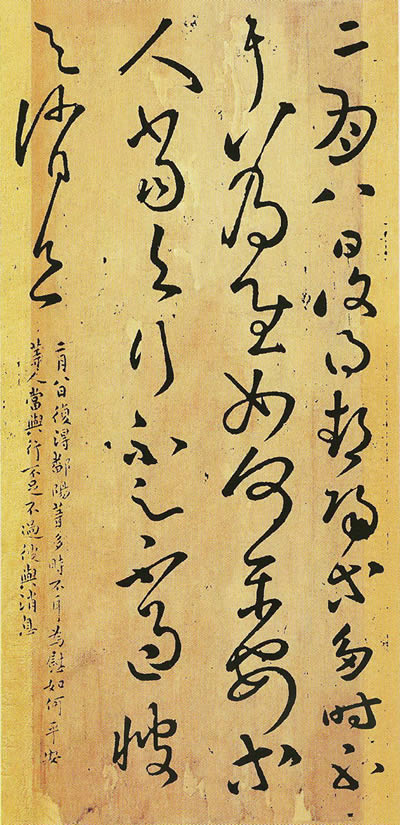 二月八日復得鄱陽等多時不
耳為慰如何平安等
人當與行不足不過
與消息
二月八日復得鄱陽等多時不耳為慰如何平安
等人當與行不足不過 與消息